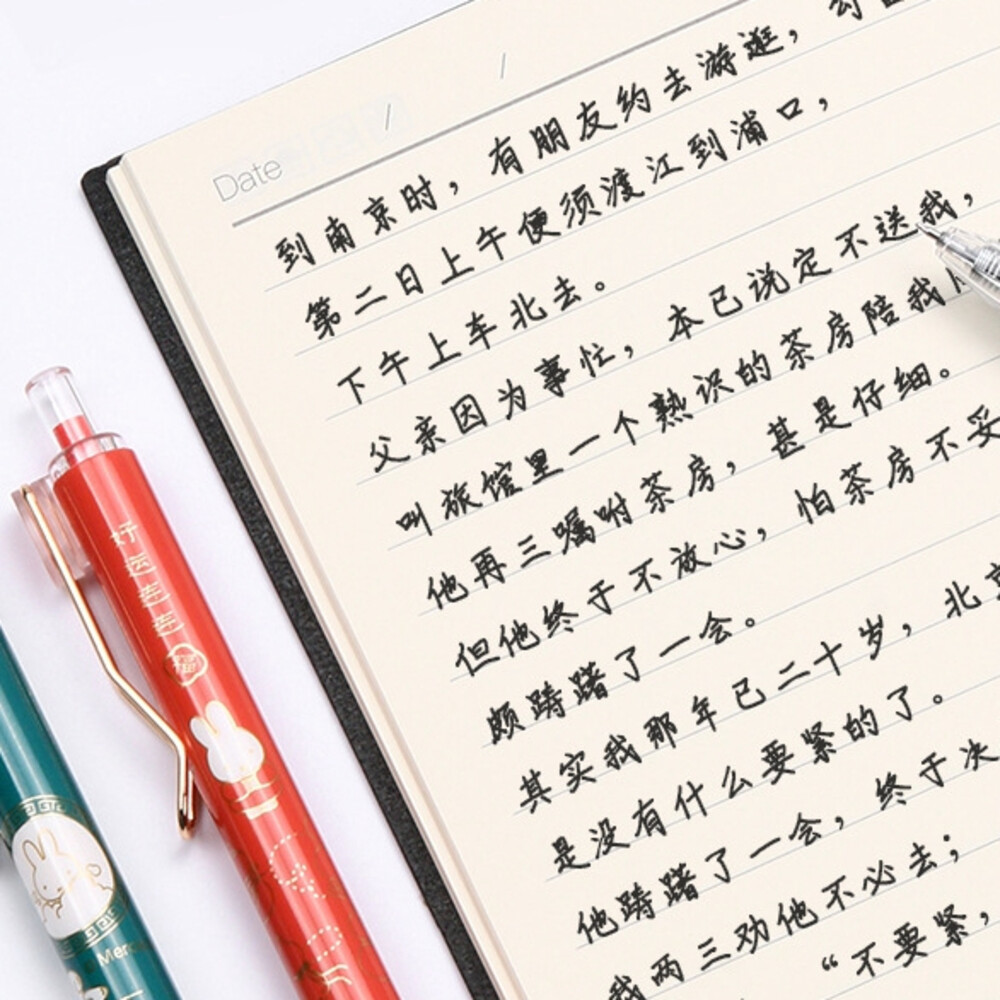 Date / /
到南京时，有朋友约去游逛，勾
第二日上午便须渡江到浦口，
下午上车北去。
父亲因为事忙，本已说定不送我，
叫旅馆里一个熟识的茶房陪我
他再三嘱咐茶房，甚是仔细。
但他终于不放心，怕茶房不妥
颇踌躇了一会。
其实我那年已二十岁，北京
是没有什么要紧的了。
他踌躇了一会，终于决
我两三劝他不必去；
“不要紧，
好运连连
福